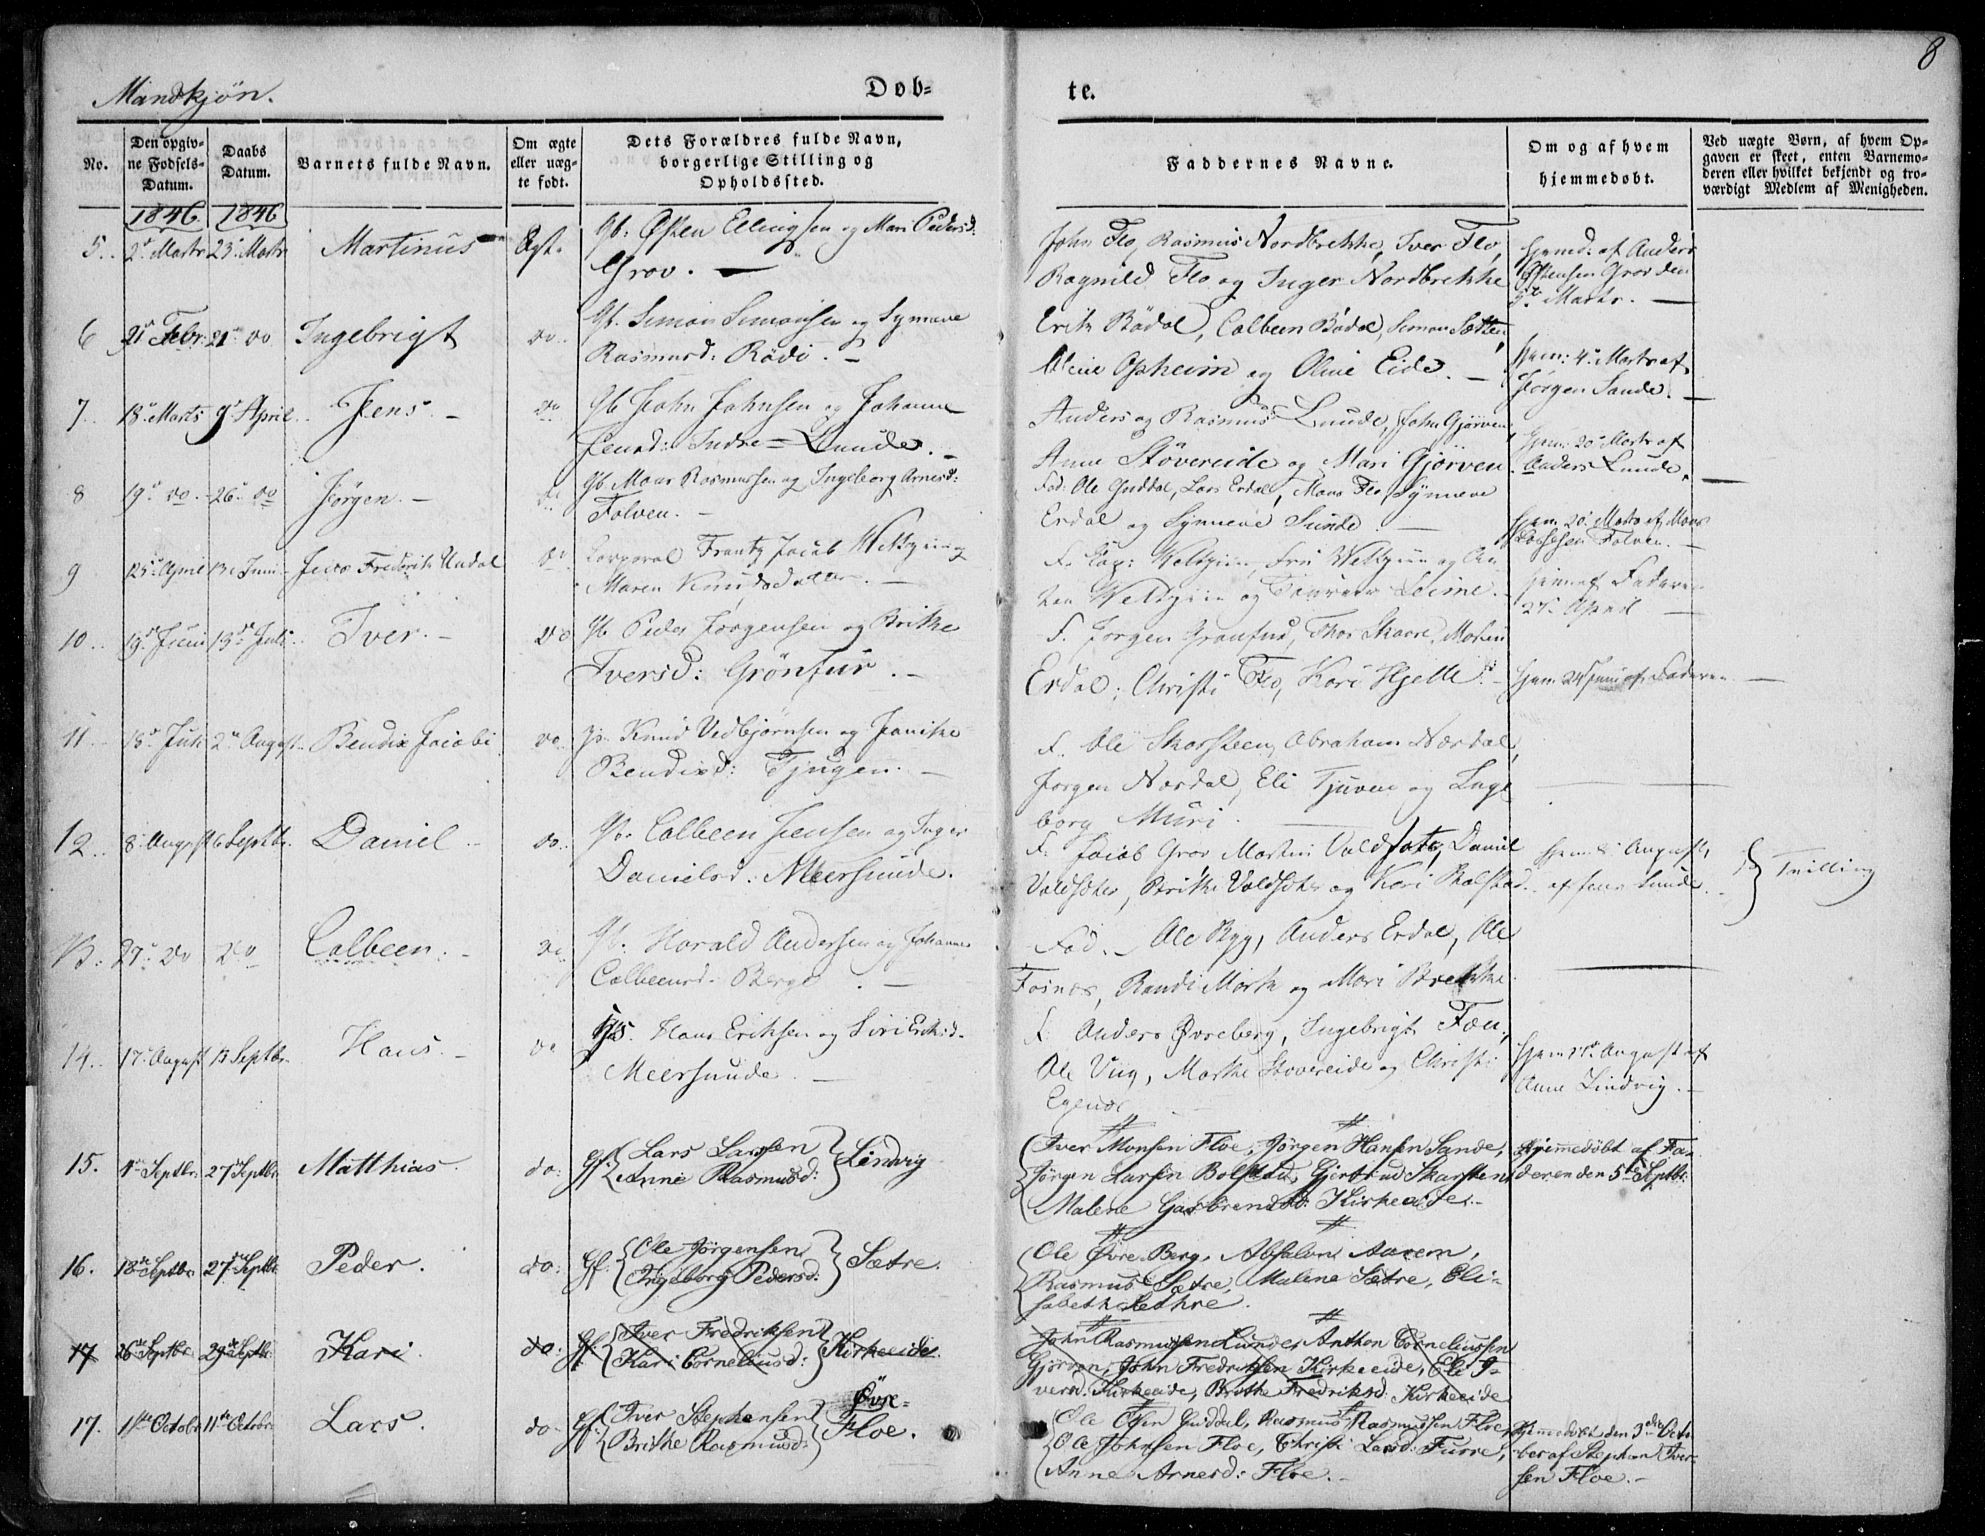 8
Mandkjøn.
Døb-
te.
No.
Den opgiv-
ne Fødsels-
Datum.
Daabs
Datum.
Barnets fulde Navn.
Om ægte
eller uæg-
te født.
Dets Forældres fulde Navn,
borgerlige Stilling og
Opholdssted.
Faddernes Navne.
Om og af hvem
hjemmedøbt.
Ved uægte Børn, af hvem Op-
gaven er skeet, enten Barnemo-
deren eller hvilket bekjendt og tro-
værdigt Medlem af Menigheden.
1846 1846
5. 2d Marts 23d Marts Martinus Ægt. Gb: Østen Ellingsen og Mari Pedersd.
Grov.
John Flo, Rasmus Nordbrekke, Iver Flo,
Ragnild Flo og Inger Nordbrekke
Hjemd: af Anders
Østensen Grov den
Marts.
6 Febr: do Ingebrigt do. Gb. Simon Simonsen og Synneve
Rasmusd: Rødi.
Erik Bødal, Colbeen Bødal, Simon Sætten,
Oline Opheim og Oline Eide.
Hjem: 4d Marts af
Jørgen Sande.
7. 18d Marts 9d April Jens. do Gb John Johnsen og Johanne
Jensd: Indre=Lunde.
Anders og Rasmus Lunde, John Gjørven,
Anne Støvereide og Mari Gjørven
Hjem: 20d Marts af
Anders Lunde.
8 19d do. 26d do Jørgen. do Gb. Mons Rasmussen og Ingeborg Arnesd:
Folven.
Fad: Ole Guddal, Lars Erdal, Mons Flo, Synneve
Erdal og Synneve Sunde.
Hjem. 20d Marts af Mons
Folven.
9 25d April 13d Juni Jens Fredrik Undal do Corporal Frantz Jacob og
Maren Knudsdatter.
hjem af Faderen
27d April
10. 19d Juni 13d Juli Iver. do Gb Peder Jørgensen og Brithe
Iversd: Grønfur.
F. Jørgen Thor Skaare, Mathis
Erdal, Christi Flo, Kari Hjelle.
Hjem 24d Juni af Faderen
11. 18d Juli 2d August Bendix Jacob do Knud Vedbjørnsen og Janike
Bendixd: Tjugen.
F. Ole Skarsteen, Abraham Nordal,
Jørgen Nordal, Eli Tjuven og Inge
borg Muri.
12. 8d August 6 Septbr. Daniel do. Gb. Colbeen Jensen og Inger
Danielsd. Meersunde.
F. Jacob Grov, Martin Valdsæter, Daniel
Valdsæter, Brithe Valdsæter og Kari Bolstad
hjem 8 August,
af Jens Sunde.
Tvilling
13. 27d do do Colbeen. do Gb. Harald Andersen og Johanne
Colbeensd. Berge
Fad. Ole Ryg, Anders Erdal, Ole
Fosnes, Randi Mork og Mari Brekke
14. 17d August 13 Septbr. Hans. do Hans Eriksen og Siri Eriksd.
Meersunde.
F. Anders Øvreberg, Ingebrigt
Ole Vug, Marthe Støvereide og Christi
Egenæs
hjem 17d August af
Anne Lindvig.
15. 1ste Septbr. 27de Septbr. Matthias. do. Gf: Lars Larssen
Anne Rasmusd: Lindvig
Iver Monsen Floe, Jørgen Hansen Sande,
Jørgen Larsen Bolstad, Gjertrud Skarsten,
Malene Gerbrandsd: Kirkeeide.
Hjemmedøbt af Fa-
deren den 5te Septbr.
16. 18de Septbr. 27de Septbr. Peder. do. Gf: Ole Jørgensen
Ingeborg Pedersd: Sætre.
Ole Øvre-Berg, Absalon Aarem,
Rasmus Sætre, Malene Sætre, Eli-
sabeth Sæthre.
17 26de Septbr. 29de Septbr. Kari. do. Gf: Iver Fredriksen
Kari Corneliusd: Kirkeeide.
John Rasmussen Lunde, Anthon Corneliussen
Gjørven, John Fredriksen Kirkeeide, Eli I-
versd. Kirkeeide, Brithe Fredriksd. Kirkeeide
17. 1ste Octobr 11te Octobr. Lars. do. Gf: Iver Stephensen
Brithe Rasmusd: Øvre-
Floe.
Ole Olsen Guddal, Rasmus Rasmussen Floe,
Ole Johnsen Floe, Christi Larsd: Furre,
Anne Arnesd: Floe.
Hjemmedøbt den 3die Octo-
ber af Stephan Iver-
sen Floe.